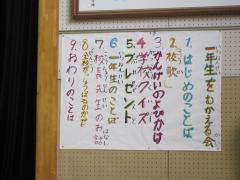 一年生をむかえる会
1.はじめのことば
2.校歌
3.かんげいのよびかけ
4.学校クイズ
5.プレゼント
6.一年生のことば
7.校長先生のお話
9.おわりのことば